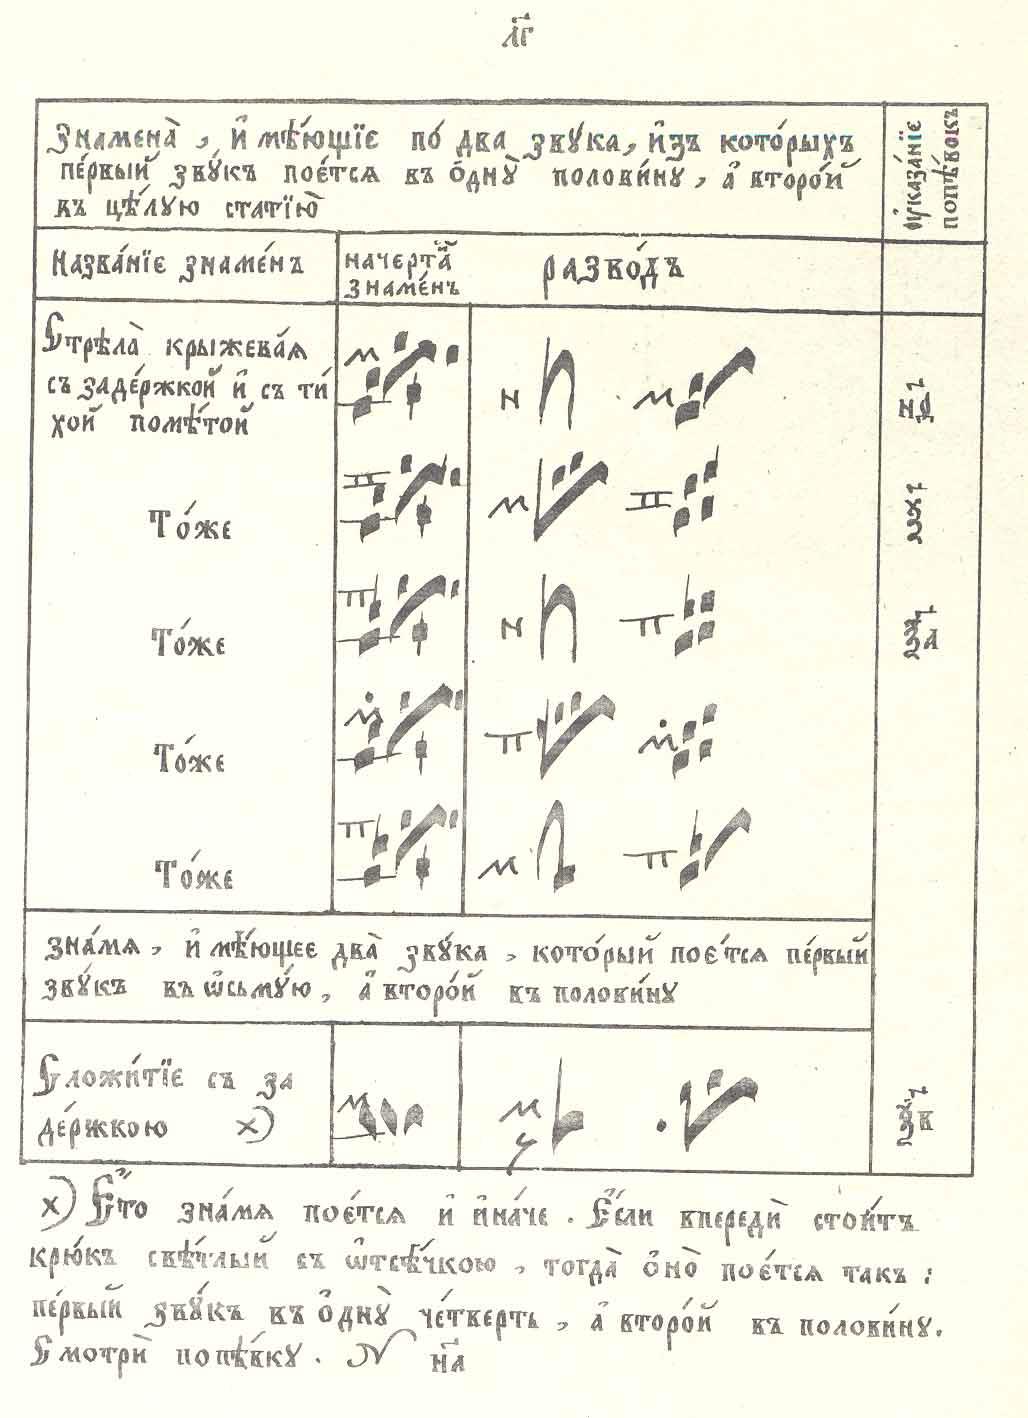 л҃г
знамена̀, и҆мѣ́ющїе по́ два звꙋ́ка, и҆зъ кото́рыхъ
пе́рвый звꙋ́къ пое́тся въ ѻ҆днꙋ̀ полови́нꙋ, а҆ второ́й
въ цѣ́лую статїю̀
ᲂу҆каза́нїе
попѣ́вокъ
Назва́нїе знаме́нъ
начерта̑
знаме́нъ
разво́дъ
Стрѣла̀ крыжева́я
съ заде́ржкой и҆ съ ти́
хой помѣ́той
То́же
То́же
То́же
То́же
зна́мя, и҆мѣ́ющее два̀ звꙋ́ка, кото́рый пое́тся пе́рвый
звꙋ́къ въ ѡ҆сьмꙋ́ю, а҆ второ́й въ полови́нꙋ
Сложи́тїе съ за
де́ржкою х)
х) Е҆́то зна́мя пое́тся и҆ и҆на́че. Е҆́сли впередѝ стои́тъ
крю́къ свѣ́тлый съ ѿсѣ́чкою, тогда̀ ѻ҆но̀ пое́тся такъ:
пе́рвый звꙋ́къ въ ѻ҆днꙋ̀ че́тверть, а҆ второ́й въ полови́нꙋ.
Смотрѝ попѣ́вкꙋ. N н҃а